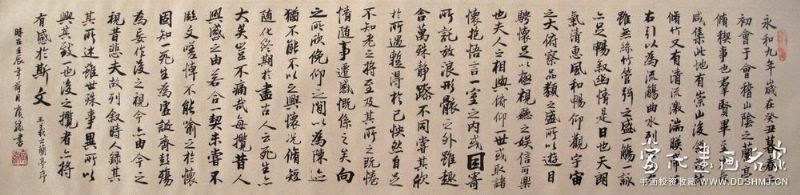 永和九年歲在癸丑暮春
初會于會稽山陰之蘭
脩稧事也羣賢畢至
咸集此地有崇山峻領
脩竹又有清流激湍暎
右引以為流觴曲水列
雖無絲竹管弦之盛一觴一詠
亦足暢叙幽情是日也天朗
氣清惠風和暢仰觀宇宙
之大俯察品類之盛所以遊目
騁懷足以極視聽之娛信可樂
也夫人之相與俯仰一世或取諸
懷抱悟言一室之内或因寄
所託放浪形骸之外雖趣
舍萬殊靜躁不同當其欣
於所遇蹔得於己怏然自足
不知老之將至及其所之既惓
情隨事遷感慨係之矣向
之所欣俛仰之間以為陳迹
猶不能不以之興懷况脩短
隨化終期於盡古人云死生亦
大矣豈不痛哉每攬昔人
興感之由若合一契未嘗不
臨文嗟悼不能喻之於懷
固知一死生為虛誕齊彭殤
為妄作後之視今亦由今之
視昔悲夫故列叙時人錄其
其所述雖世殊事異所以
興其致一也後之攬者亦將
有感於斯文 王羲之蘭亭序
時在壬辰年
当代书画名家
书画投资收藏 WWW.DDSHMJ.CN